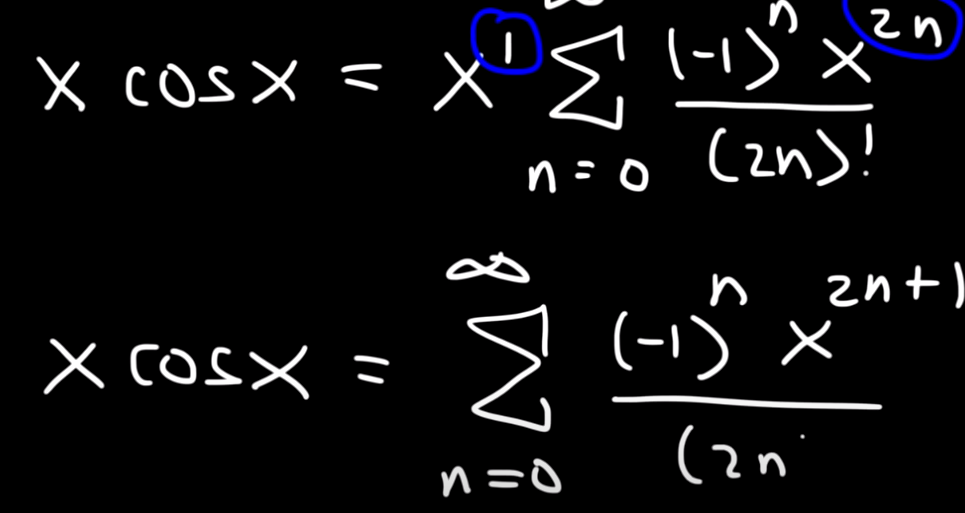 x cos x = x^1 ∞∑n=0 (-1)^n x^2n / (2n)!
x cos x = ∞∑n=0 (-1)^n x^2n+1 / (2n